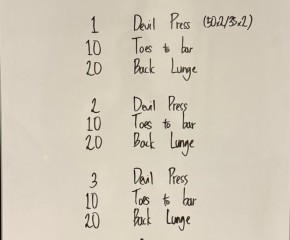 1 Devil Press (50x2/35x2)
10 Toes to bar
20 Back Lunge
2 Devil Press
10 Toes to bar
20 Back Lunge
3 Devil Press
10 Toes to bar
20 Back Lunge